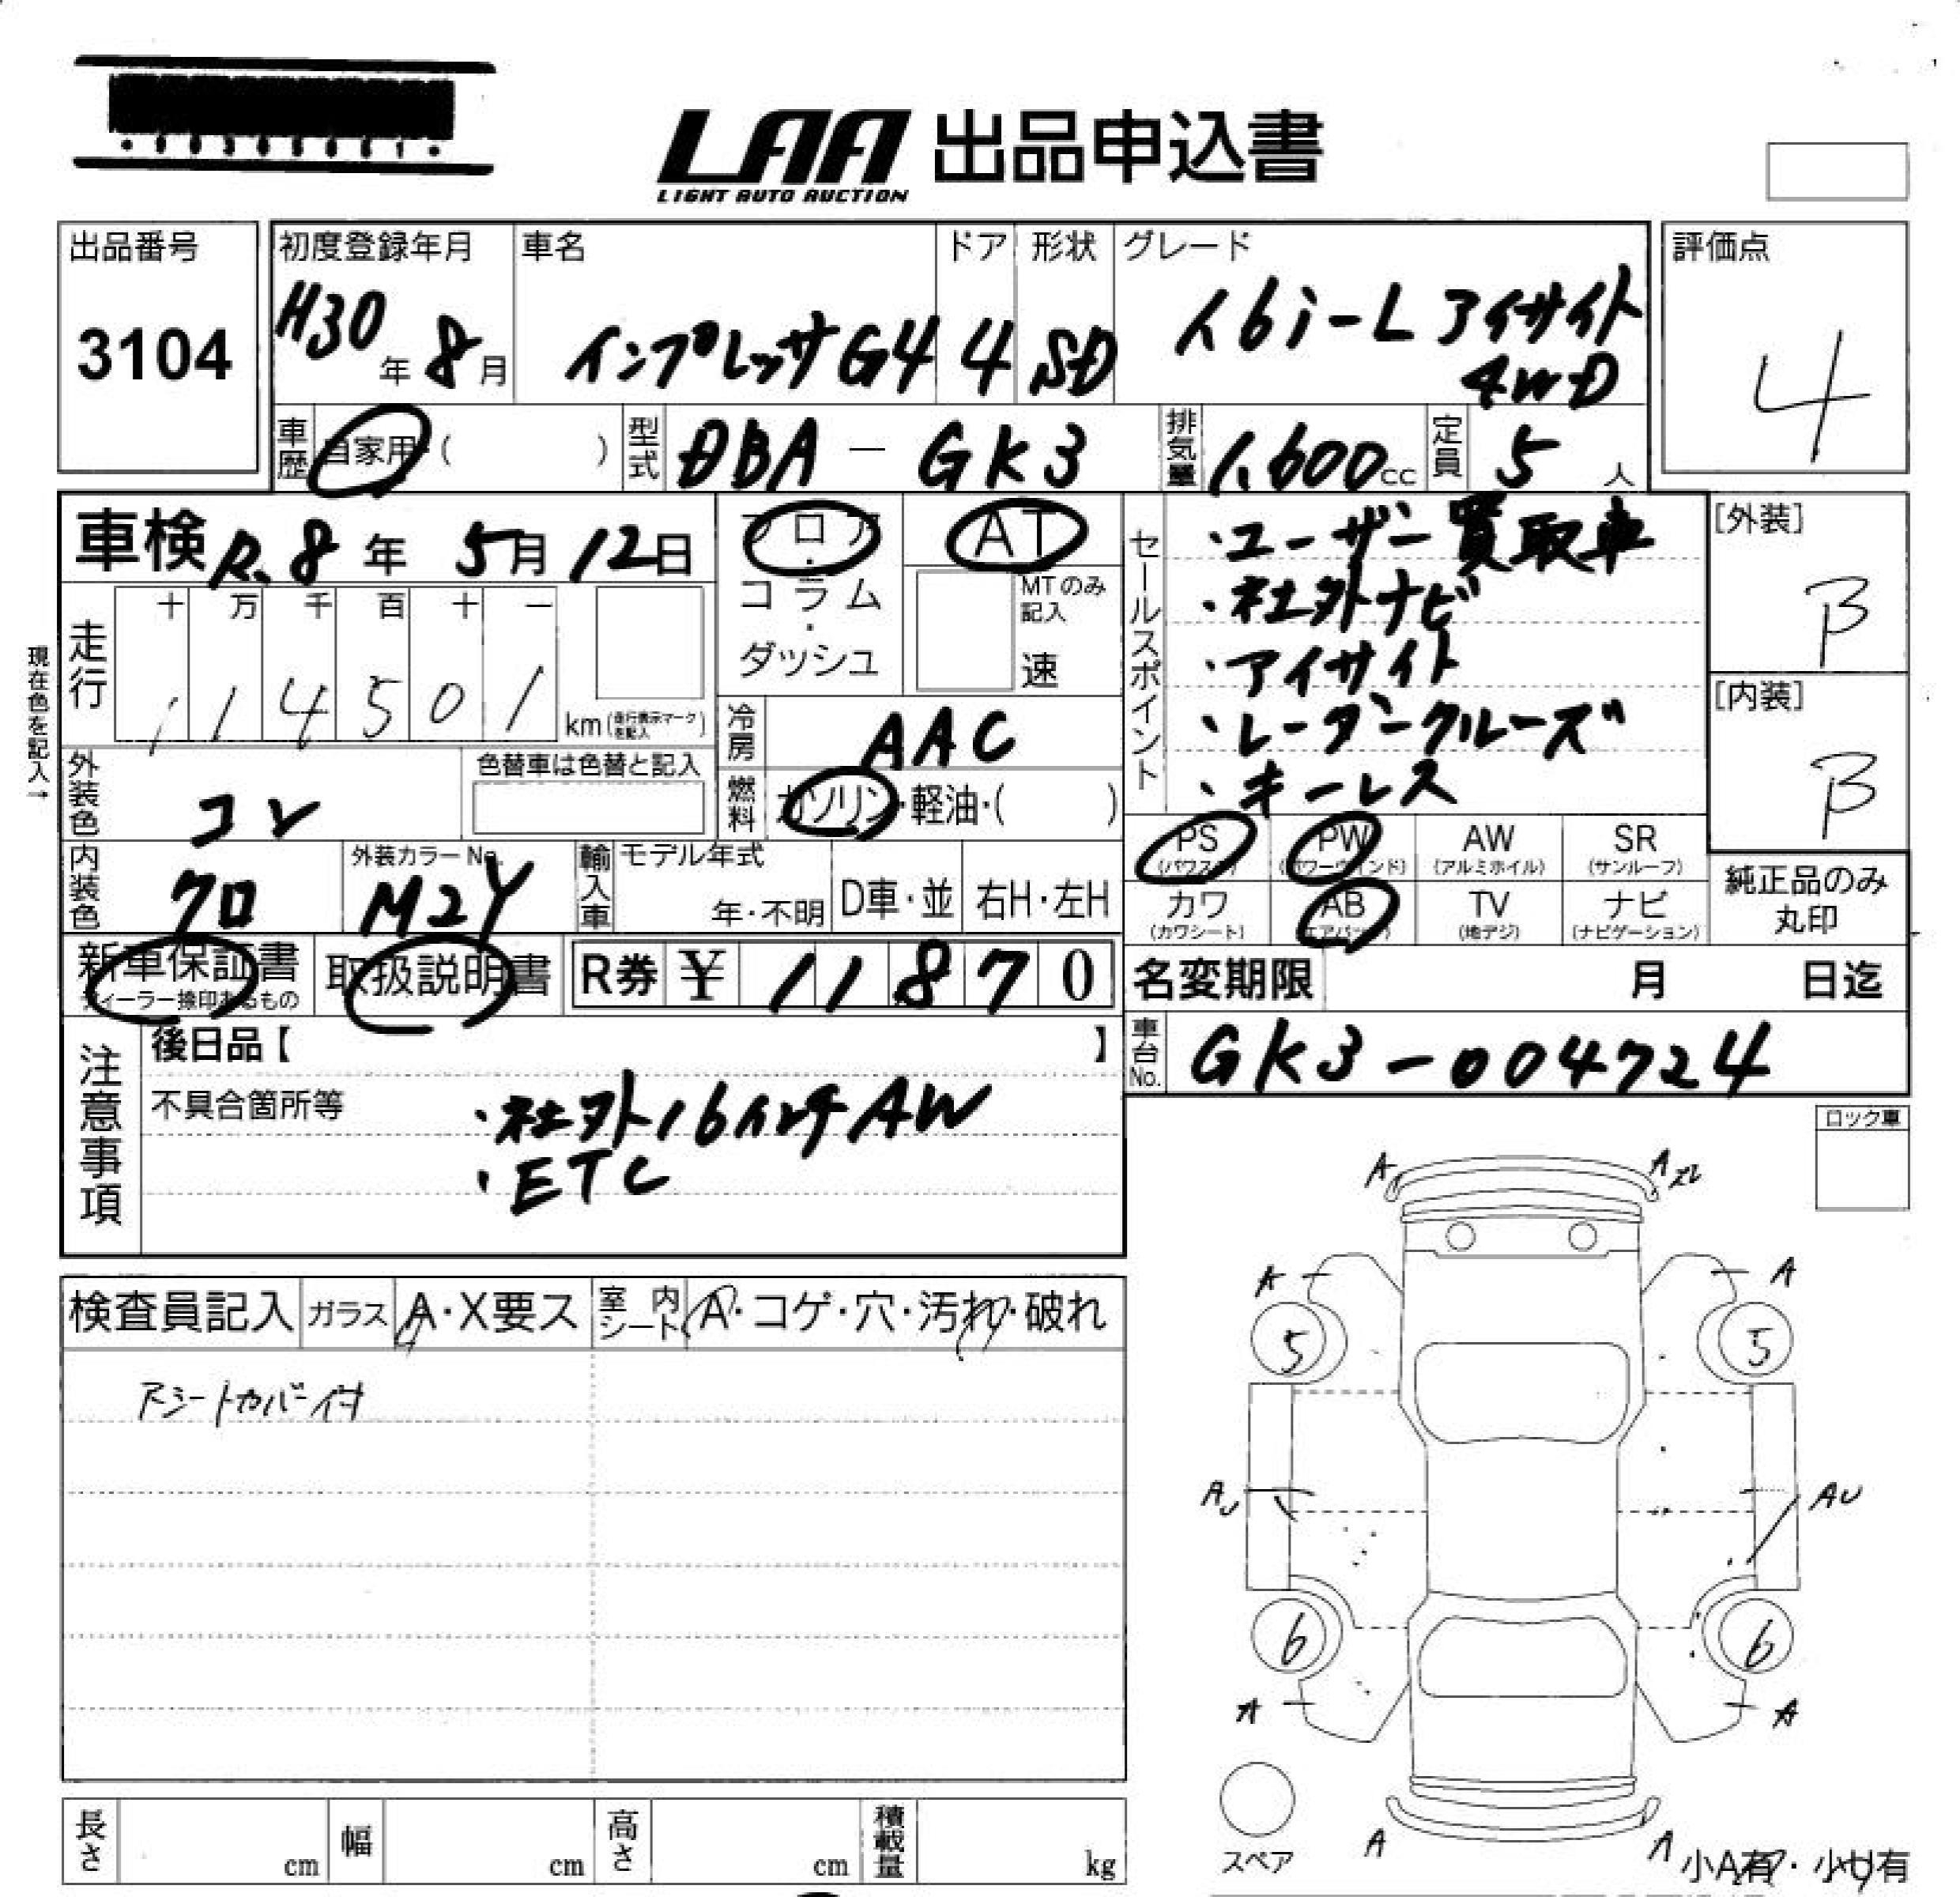 LAA 出品申込書
LIGHT AUTO AUCTION
出品番号
3104
初度登録年月
H30年8月
車名
インプレッサG4
ドア
4
形状
SD
グレード
1.6i-L アイサイト
4WD
評価点
4
車歴 自家用・( )
型式 DBA-GK3
排気量 1,600cc
定員 5人
車検 R.8年5月12日
フロア・コラム・ダッシュ
AT
MTのみ記入
速
セールスポイント
・ユーザー買取車
・社外ナビ
・アイサイト
・レーダークルーズ
・キーレス
[外装]
B
[内装]
B
現在色を記入→
走行
十 万 千 百 十 一
1 1 4 5 0 1 km(走行表示マークを記入)
冷房 AAC
燃料 ガソリン・軽油・( )
外装色 コン
色替車は色替と記入
内装色 クロ
外装カラーNo. M2Y
輸入車
モデル年式
年・不明
D車・並
右H・左H
PS(パワステ)
PW(パワーウィンド)
AW(アルミホイル)
SR(サンルーフ)
カワ(カワシート)
AB(エアバッグ)
TV(地デジ)
ナビ(ナビゲーション)
純正品のみ丸印
新車保証書
ディーラー捺印あるもの
取扱説明書
R券 ¥ 11870
名変期限 月 日迄
車台No. GK3-004724
注意事項
後日品【 】
不具合箇所等
・社外16インチAW
・ETC
ロック車
検査員記入
ガラス A・X要ス
室内シート A・コゲ・穴・汚れ・破れ
シートカバー付
A
A
A
A
5
5
AU
AU
6
6
A
A
スペア
A
A
小A有・小U有
長さ cm
幅 cm
高さ cm
積載量 kg